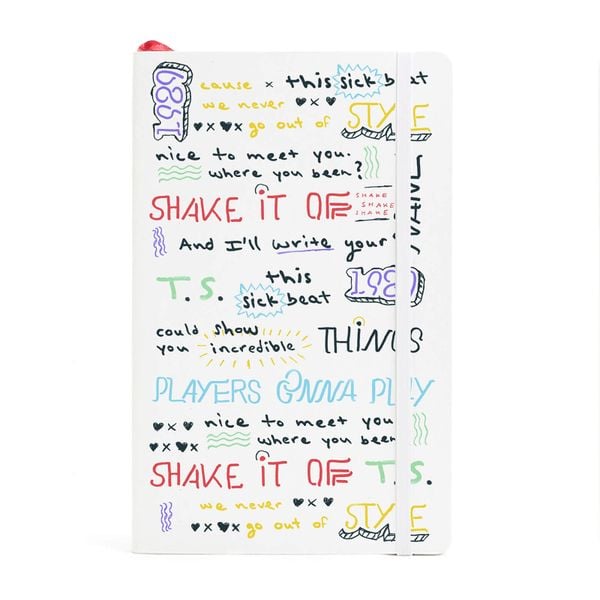 1989
cause x this sick beat
we never x
x x go out of STYLE
nice to meet you.
where you been?
SHAKE iT OFF
SHAKE
SHAKE
SHAKE
And I'll write your
T.S.
this
sick beat
1989
could show
you incredible THiNGS
PLAYERS GONNA PLAY
x nice to meet you
x x where you been
SHAKE iT OFF T.S.
we never x
x x go out of STYLE